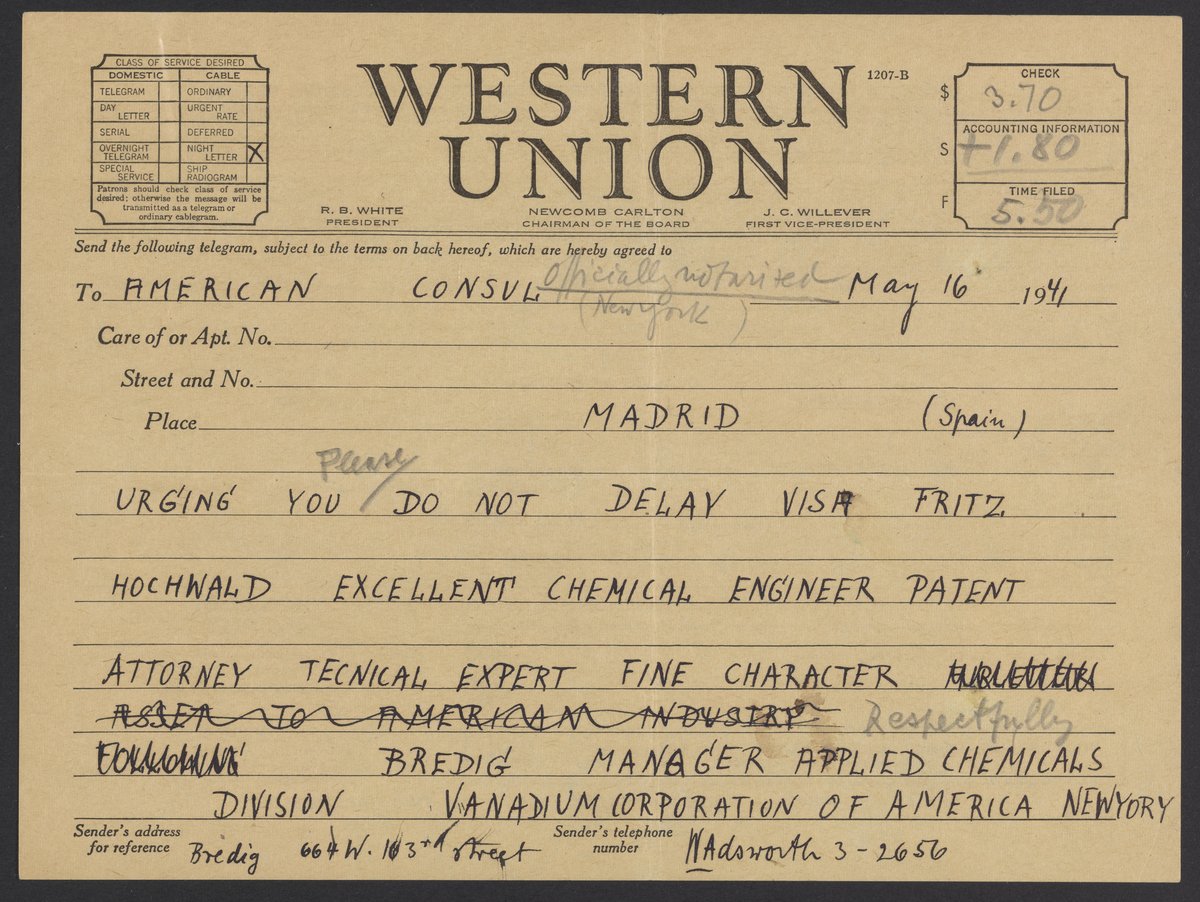 CLASS OF SERVICE DESIRED
DOMESTIC CABLE
TELEGRAM ORDINARY
DAY LETTER URGENT RATE
SERIAL DEFERRED
OVERNIGHT TELEGRAM NIGHT LETTER X
SPECIAL SERVICE SHIP RADIOGRAM
Patrons should check class of service
desired; otherwise the message will be
transmitted as a telegram or
ordinary cablegram.
WESTERN
UNION
1207-B
R. B. WHITE
PRESIDENT
NEWCOMB CARLTON
CHAIRMAN OF THE BOARD
J. C. WILLEVER
FIRST VICE-PRESIDENT
$ CHECK
3.70
S ACCOUNTING INFORMATION
+1.80
F TIME FILED
5.50
Send the following telegram, subject to the terms on back hereof, which are hereby agreed to
To AMERICAN CONSUL officially notarized May 16 1941
(New York)
Care of or Apt. No.
Street and No.
Place MADRID (Spain)
Please
URGING YOU DO NOT DELAY VISA FRITZ
HOCHWALD EXCELLENT CHEMICAL ENGINEER PATENT
ATTORNEY TECNICAL EXPERT FINE CHARACTER
ASSET TO AMERICAN INDUSTRY Respectfully
FOLLOWING BREDIG MANAGER APPLIED CHEMICALS
DIVISION VANADIUM CORPORATION OF AMERICA NEWYORY
Sender's address
for reference Bredig 664 W. 163rd street
Sender's telephone
number WAdsworth 3-2656